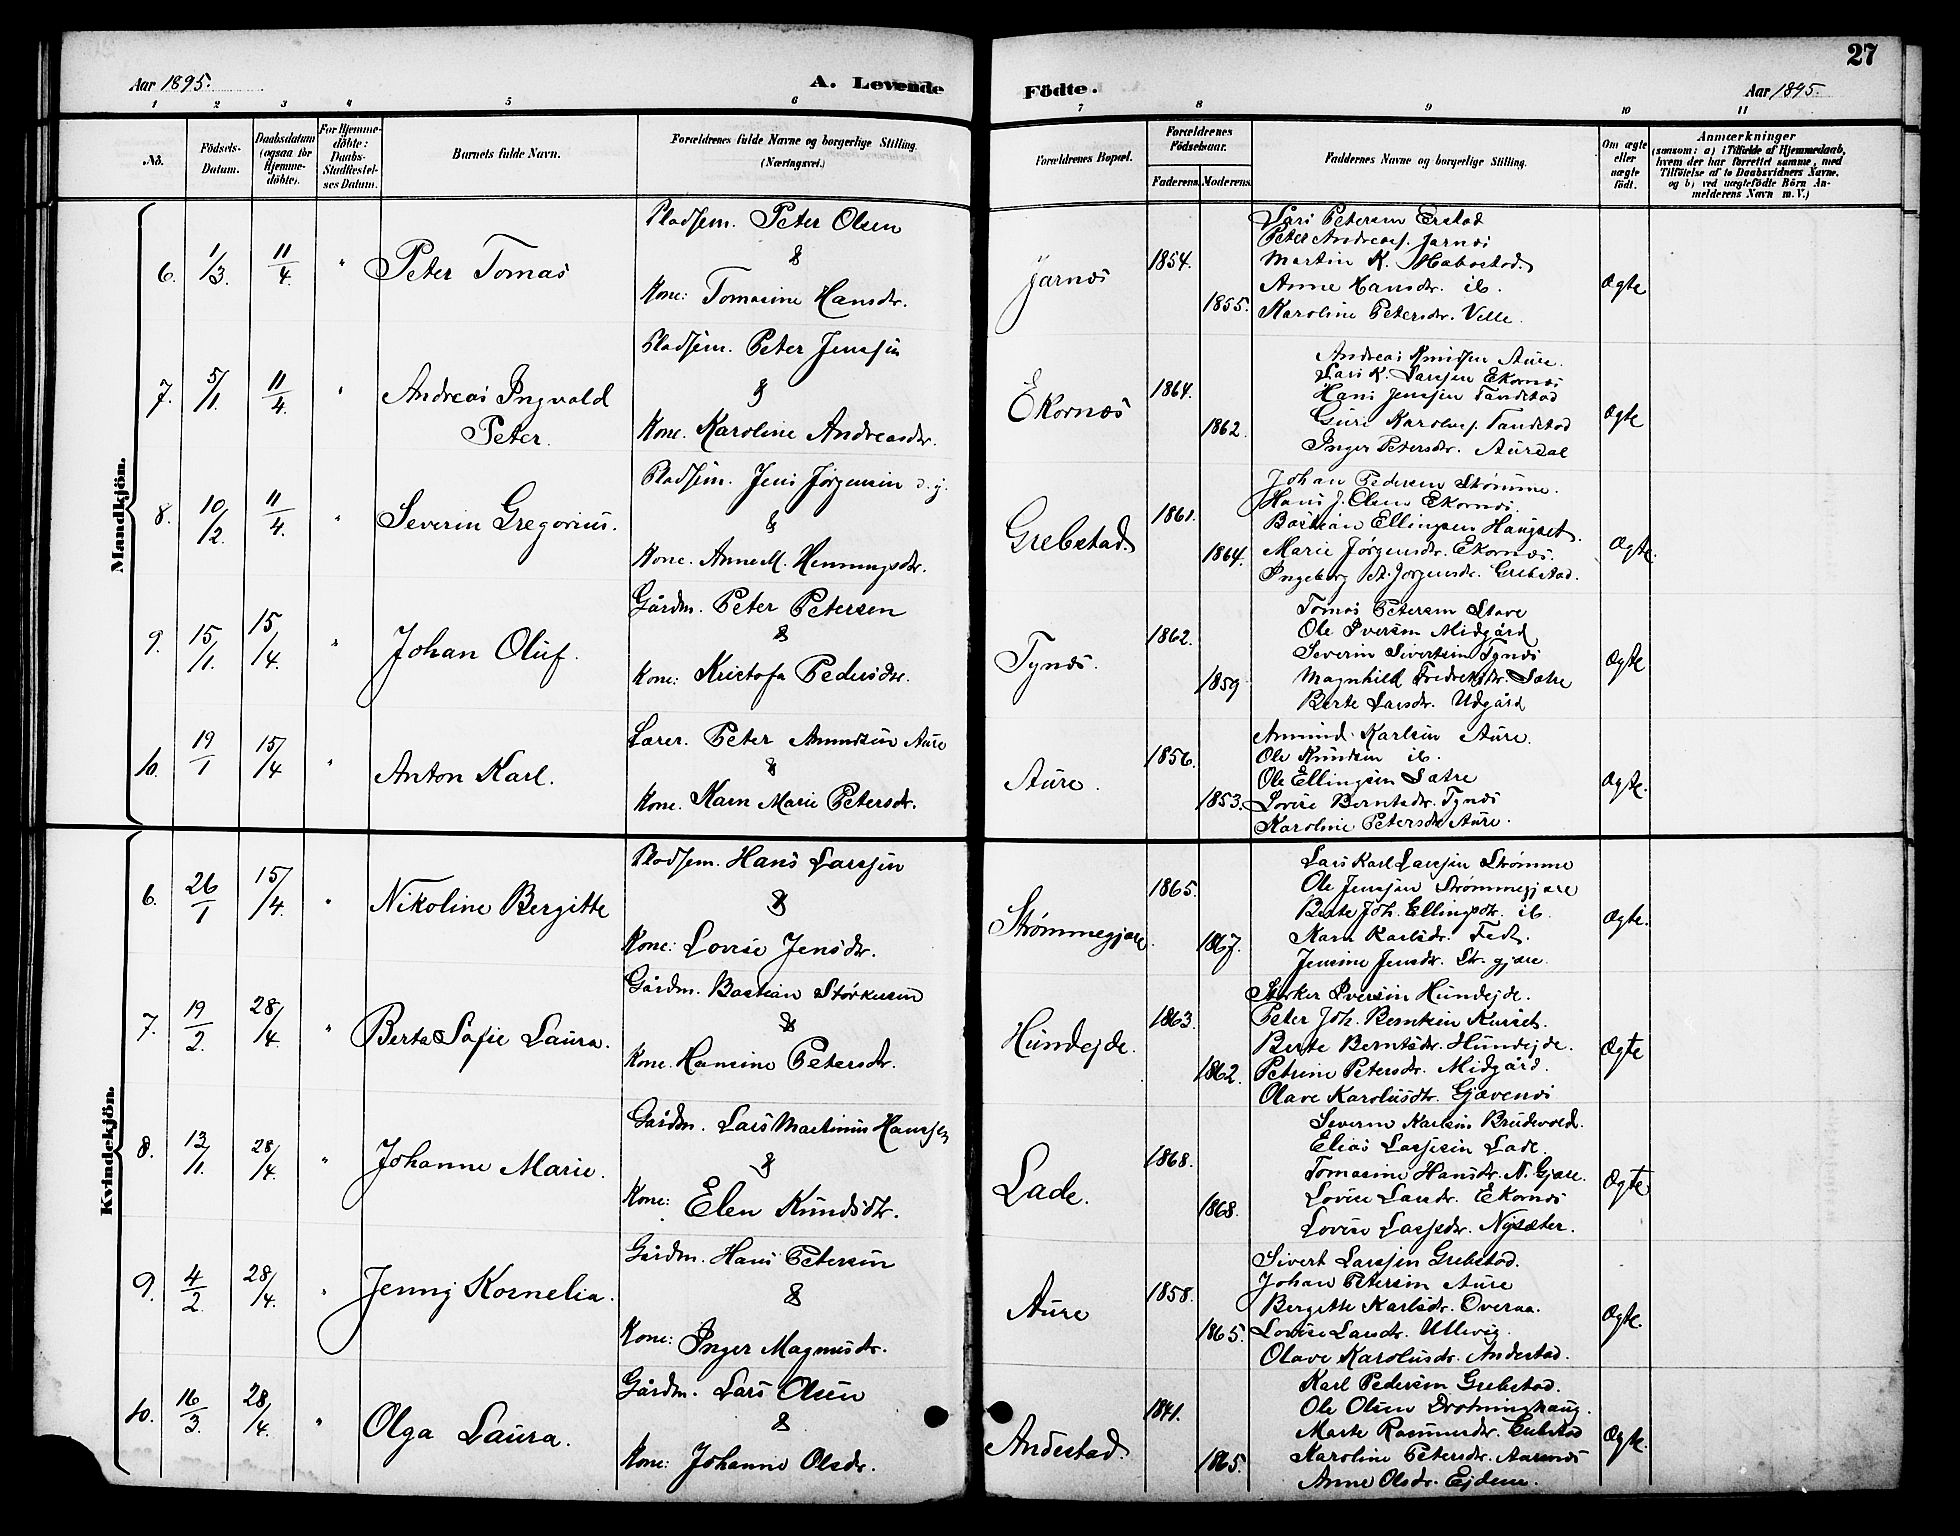 27
Aar 1895. A. Levende Födte. Aar 1895.
1 2 3 4 5 6 7 8 9 10 11
No. Födsels-Datum. Daabsdatum (ogsaa for Hjemme-döbte). For Hjemme-döbte: Daabs-Stadfæstel-ses Datum. Barnets fulde Navn. Forældrenes fulde Navne og borgerlige Stilling. (Næringsvei.) Forældrenes Bopæl. Forældrenes Födselsaar. Faderens. Moderens. Faddernes Navne og borgerlige Stilling. Om ægte eller uægte födt. Anmærkninger (saasom: a) i Tilfælde af Hjemmedaab, hvem der har forrettet samme, med Tilföielse af to Daabsvidners Navne, og b) ved uægtefödte Börn An-melderens Navn m. V.)
Mandkjön.
6. 1/3. 11/4. " Peter Tomas
Pladsem. Peter Olsen
&
Kone: Tomasine Hansdtr.
Jarnæs 1854. 1855.
Lars Petersen Erstad
Peter Andreas. Jarnæs
Martin K.
Anne Hansdtr. ib.
Karoline Petersdtr. Velle.
Ægte
7. 5/1. 11/4. " Andreas Ingvald
Peter.
Pladsem. Peter Jenssen
&
Kone. Karoline Andreasdtr.
Ekornæs 1864. 1862.
Andreas Knudsen Aure.
Lars K. Larssen Ekornæs
Hans Jenssen Tandstad
Guri Karolus. Tandstad
Inger Petersdtr. Auredal
Ægte
8. 10/2. 11/4. " Severin Gregorius.
Pladsem. Jens Jørgensen d.y.
&
Kone. Anne M. Henningsdtr.
Grebstad. 1861. 1864.
Johan Pedersen Strømme.
Hans J. Olsen Ekornæs.
Bastian Ellingsen Haugset.
Marie Jørgensdtr. Ekornæs.
Ingeborg Pet. Jørgensdtr. Grebstad.
Ægte.
9. 15/1. 15/4. " Johan Oluf.
Gårdm. Peter Petersen
&
Kone: Kristofa Pedersdtr.
Tynæs. 1862. 1859
Tomas Petersen Stave
Ole Iversen Midgård
Severin Sivertsen Tynæs
Magnhild Fredriksdtr. Sætre
Berte Larsdtr. Udgård
Ægte
10. 19/1 15/4 " Anton Karl.
Lærer. Peter Amundsen Aure
&
Kone. Karn Marie Petersdtr.
Aure. 1856. 1853.
Amund Karlsen Aure.
Ole Knudsen ib.
Ole Ellingsen Sætre
Lovise Berntsdtr. Tynæs
Karoline Petersdtr Aure.
Ægte.
Kvindekjön.
6. 26/1 15/4. " Nikoline Bergitte
Pladsem. Hans Larssen
&
Kone: Lovise Jensdtr.
Strømmegjære. 1865. 1867.
Lars Karl Larssen Strømme
Ole Jenssen Strømmegjære
Berte Joh. Ellingsdtr. ib.
Karn Karlsdtr. Fedt.
Jensine Jensdtr. Str. gjære.
Ægte.
7. 19/2. 28/4. " Berta Sofie Laura.
Gårdm. Bastian Størkersen
&
Kone. Hansine Petersdtr.
Hundejde. 1863. 1862.
Størker Iversen Hundejde.
Peter Joh. Berntsen Kurset.
Berte Berntsdtr. Hundejde.
Petrine Petersdtr. Midgård.
Olave Karolusdtr. Gjævenæs
Ægte
8. 13/1. 28/4. " Johanne Marie.
Gårdm. Lars Martinus Hanssen
&
Kone: Elen Knudsdtr.
Lade. 1868. 1868.
Severin Karlsen Brudevold.
Elias Larssen Lade.
Tomasine Hansdtr. N. Gjære.
Lovise Larsdtr. Ekornæs
Lovise Larssdtr. Nysæter.
Ægte
9. 4/2. 28/4. " Jenny Kornelia.
Gårdm. Hans Petersen
&
Kone: Inger Magnusdtr.
Aure 1858. 1865.
Sivert Larssen Grebstad.
Johan Petersen Aure
Bergitte Karlsdtr. Overaa.
Lovise Larsdtr. Ullevig.
Olave Karolusdtr. Andestad.
Ægte.
10. 16/3. 28/4. " Olga Laura.
Gårdm. Lars Olsen
&
Kone: Johanne Olsdtr.
Andestad. 1841. 1865.
Karl Pedersen Grebstad.
Ole Olsen Drotninghaug.
Marte Rasmusdtr. Grebstad
Karoline Petersdtr. Aursnæs
Anne Olsdtr. Ejdem.
Ægte.